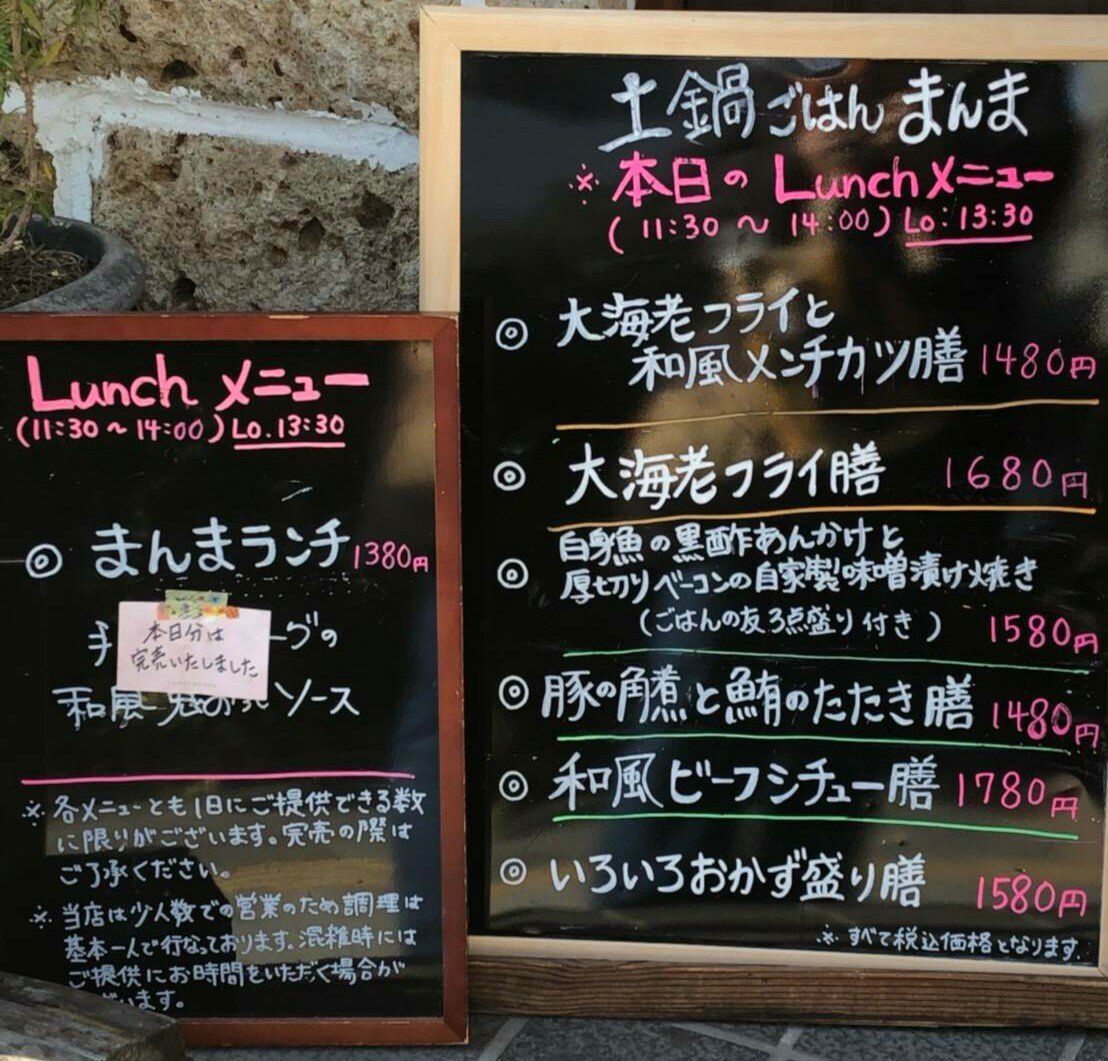 土鍋ごはん まんま
※本日の Lunchメニュー
(11:30～14:00) Lo:13:30
◎ 大海老フライと
和風メンチカツ膳 1480円
◎ 大海老フライ膳 1680円
白身魚の黒酢あんかけと
◎ 厚切りベーコンの自家製味噌漬け焼き
(ごはんの友3点盛り付き) 1580円
◎ 豚の角煮と鮪のたたき膳 1480円
◎ 和風ビーフシチュー膳 1780円
◎ いろいろおかず盛り膳 1580円
※すべて税込価格となります。
Lunch メニュー
(11:30～14:00) Lo.13:30
◎ まんまランチ 1380円
本日分は
完売いたしました
グの
和風 ソース
※各メニューとも1日にご提供できる数
に限りがございます。完売の際は
ご了承ください。
※当店は少人数での営業のため調理は
基本一人で行なっております。混雑時には
ご提供にお時間をいただく場合が
います。